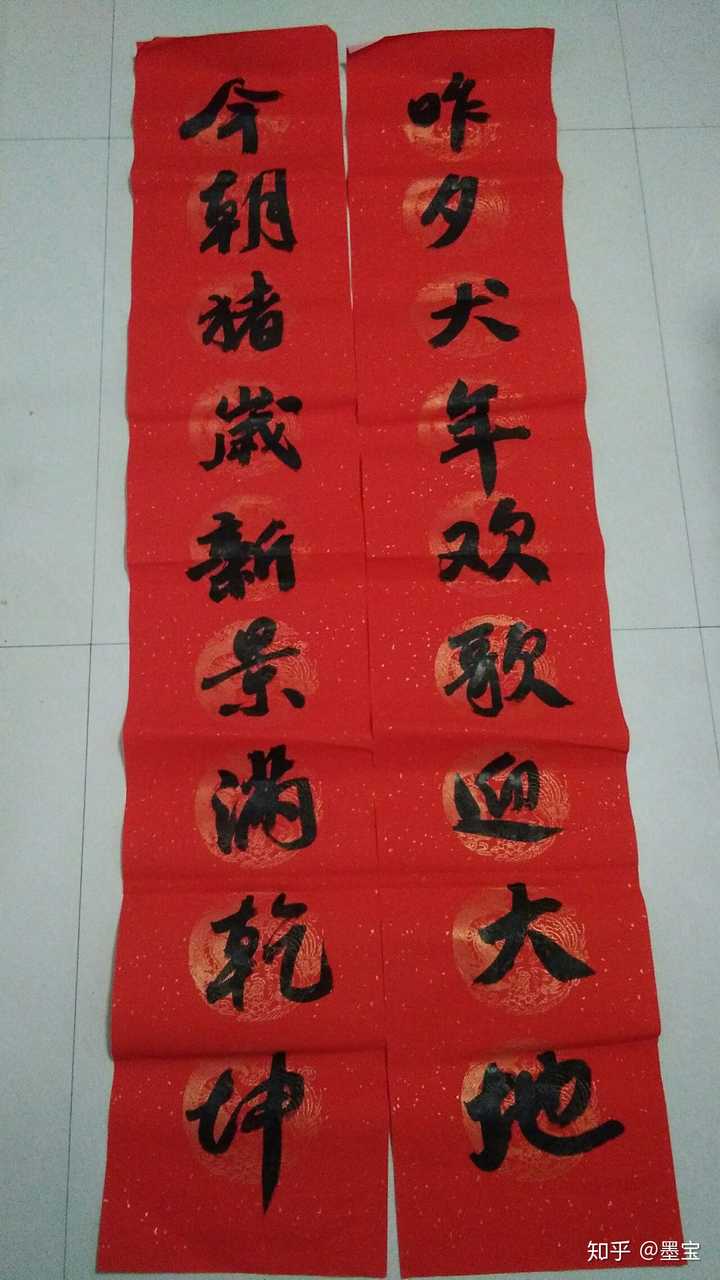 咋夕犬年欢歌迎大地
今朝猪歳新景满乾坤
知乎 @墨宝